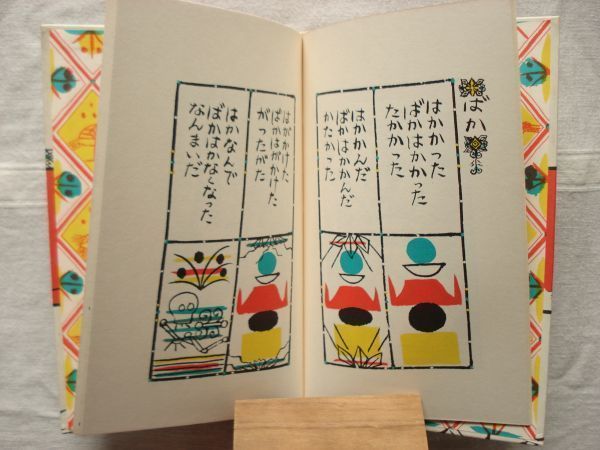 ばか
はかかった
ばかはかかった
たかかった
はかかんだ
ばかはかかんだ
かたかった
はがかけた
ばかはがかけた
がったがた
はかなんで
ばかはかなくなった
なんまいだ